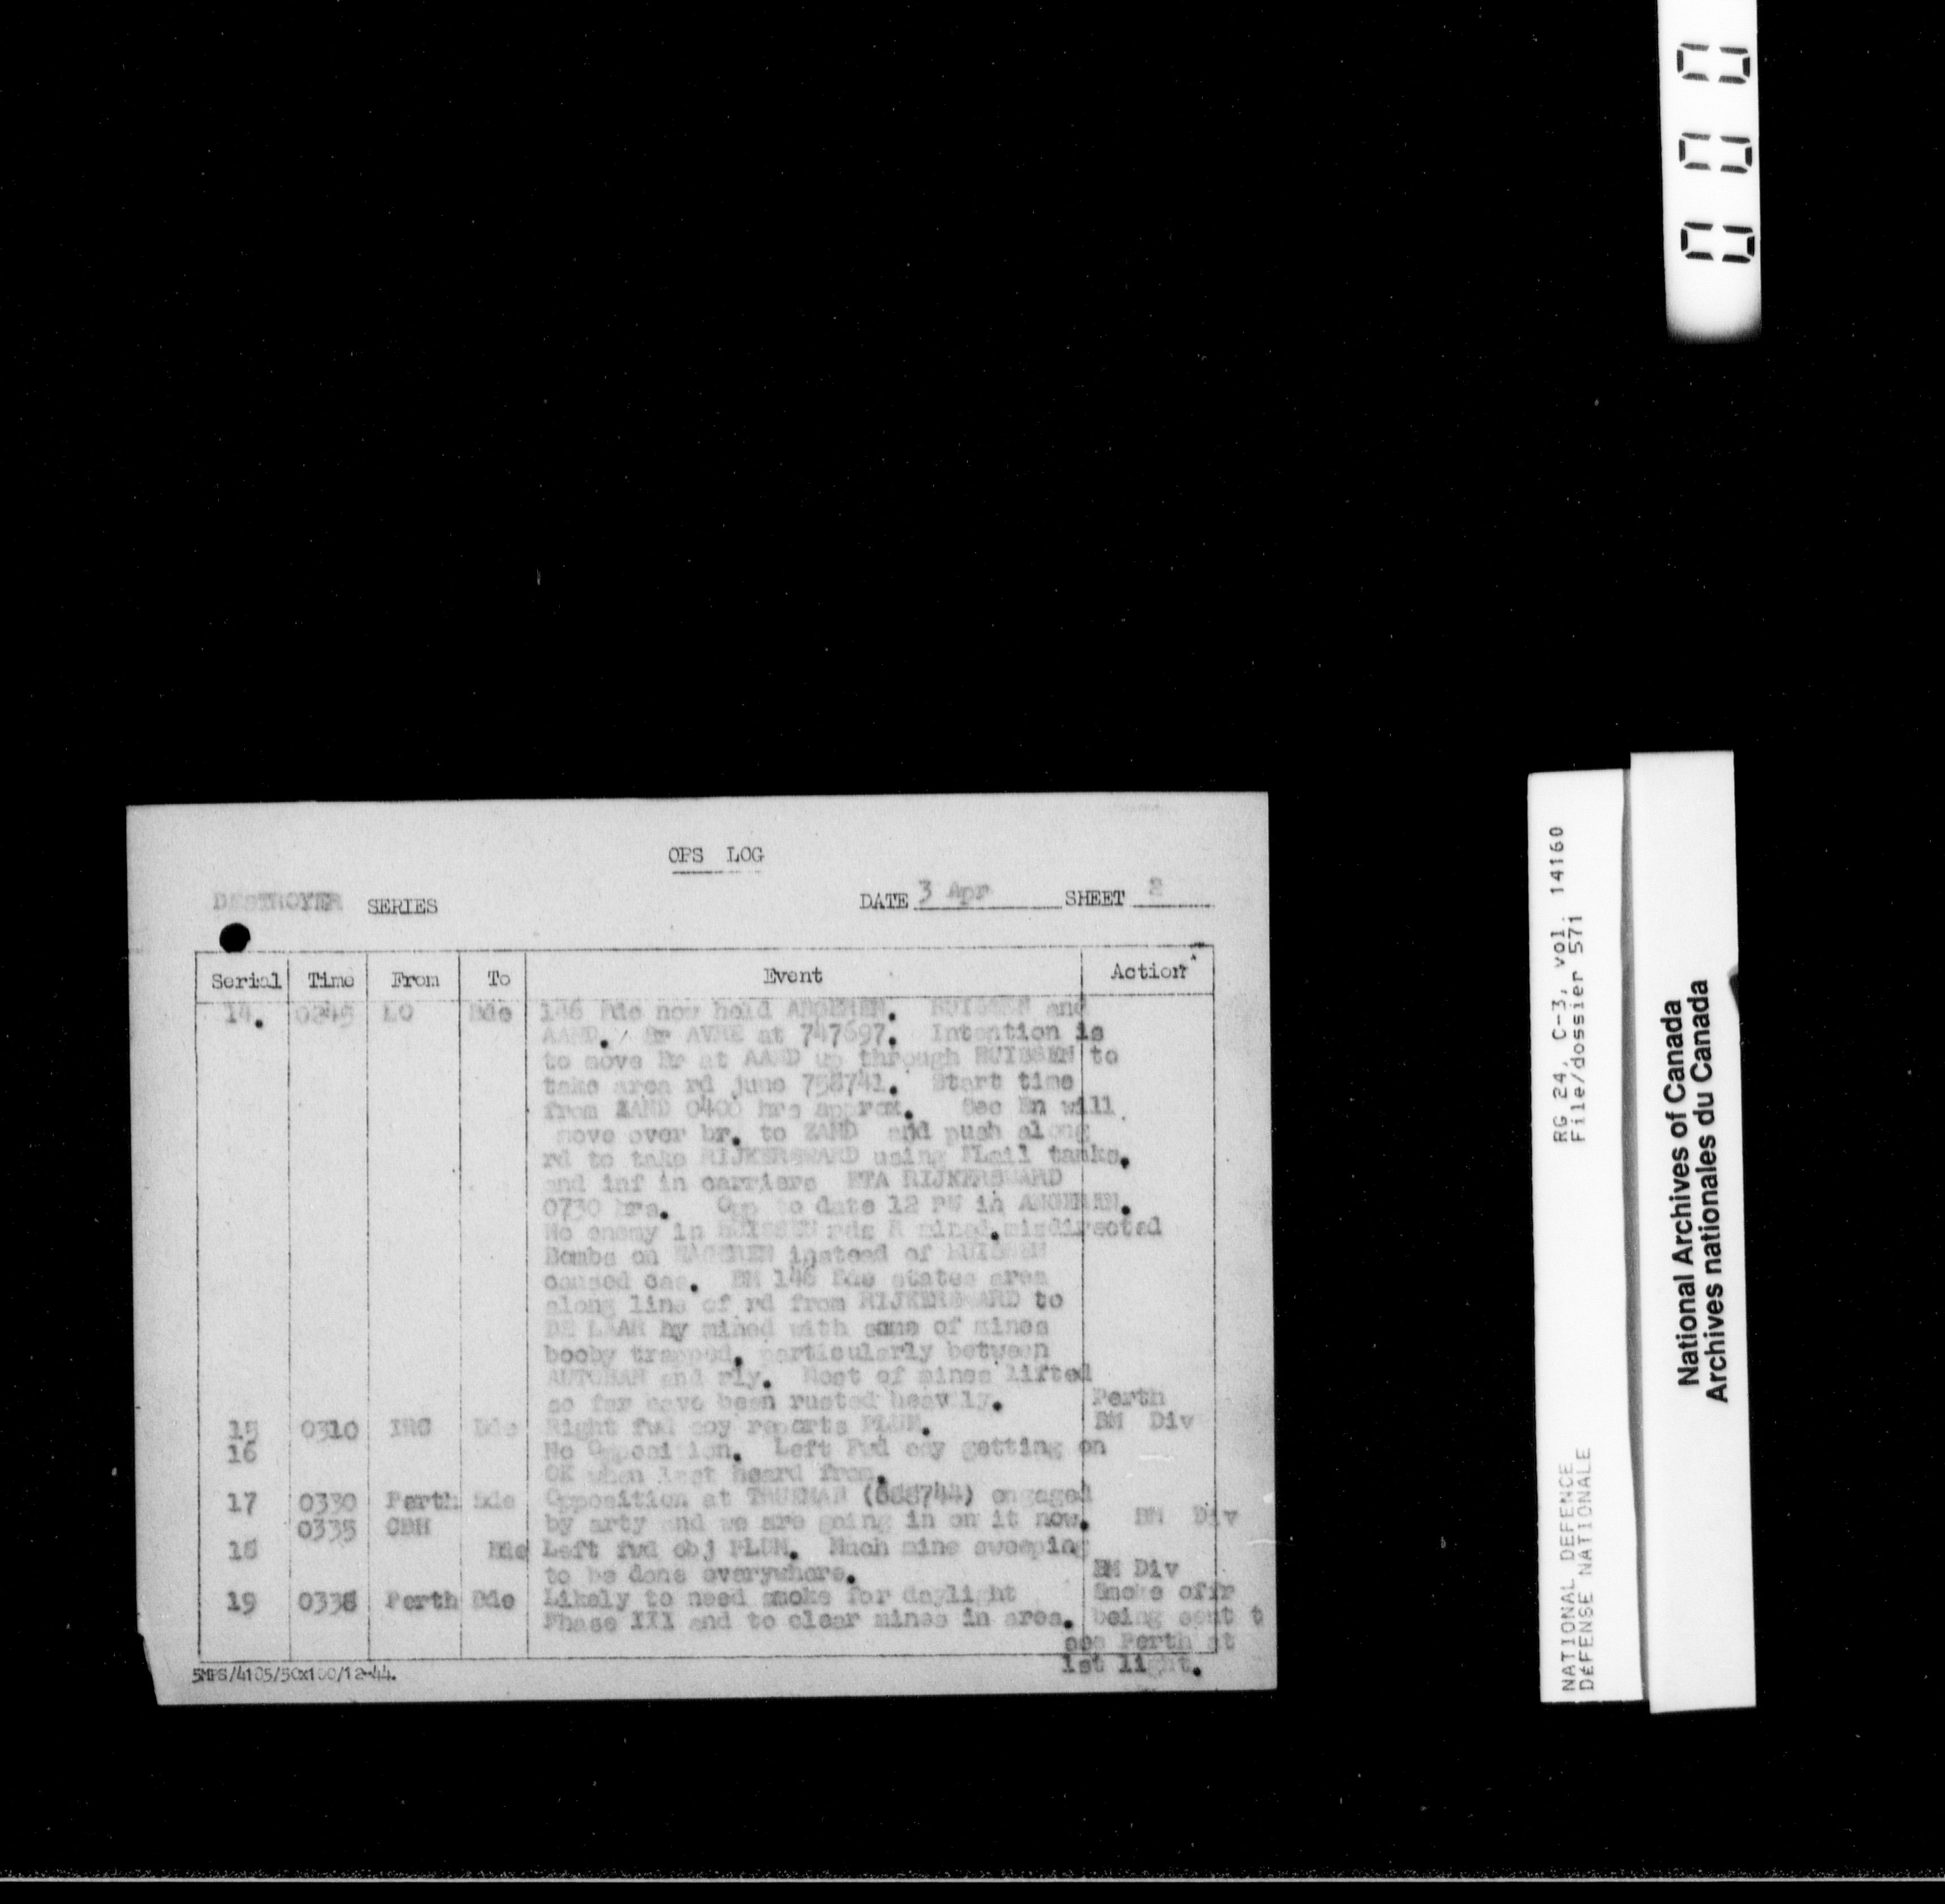 OPS LOG
DESTROYER SERIES DATE 3 Apr SHEET 2
Serial Time From To Event Action
14. 0245 LO Bde 146 Bde now hold ANGEREN. HUISSEN and
AAND. / Br AVRE at 747697. Intention is
to move Br at AAND up through HUISSEN to
take area rd junc 758741. Start time
from ZAND 0400 hrs approx. Sec Bn will
move over br. to ZAND and push along
rd to take RIJKERSWARD using FLail tanks.
and inf in carriers ETA RIJKERSWARD
0730 hrs. Opp to date 12 PW in ANGEREN.
No enemy in HUISSEN rds R mined.misdirected
Bombs on instead of HUISSEN
caused cas. BM 146 Bde states area
along line of rd from RIJKERSWARD to
DE LAAR hy mined with some of mines
booby trapped, particularly between
AUTOBAN and rly. Most of mines lifted
so far have been rusted heavily. Perth
15 0310 IRC Bde Right fwd coy reports PLUM. BM Div
16 No Opposition. Left Fwd coy getting on
OK when last heard from.
17 0330 Perth Bde Opposition at (688744) engaged
0335 CBH by arty and we are going in on it now. BM Div
18 Bde Left fwd obj PLUM. Much mine sweeping
to be done everywhere. BM Div
19 0338 Perth Bde Likely to need smoke for daylight Smoke ofir
Phase III and to clear mines in area. being sent t
see Perth at
1st light.
5MPS/4105/50x100/12-44.
000
RG 24, C-3, vol. 14160
File/dossier 571
NATIONAL DEFENCE
DÉFENSE NATIONALE
National Archives of Canada
Archives nationales du Canada